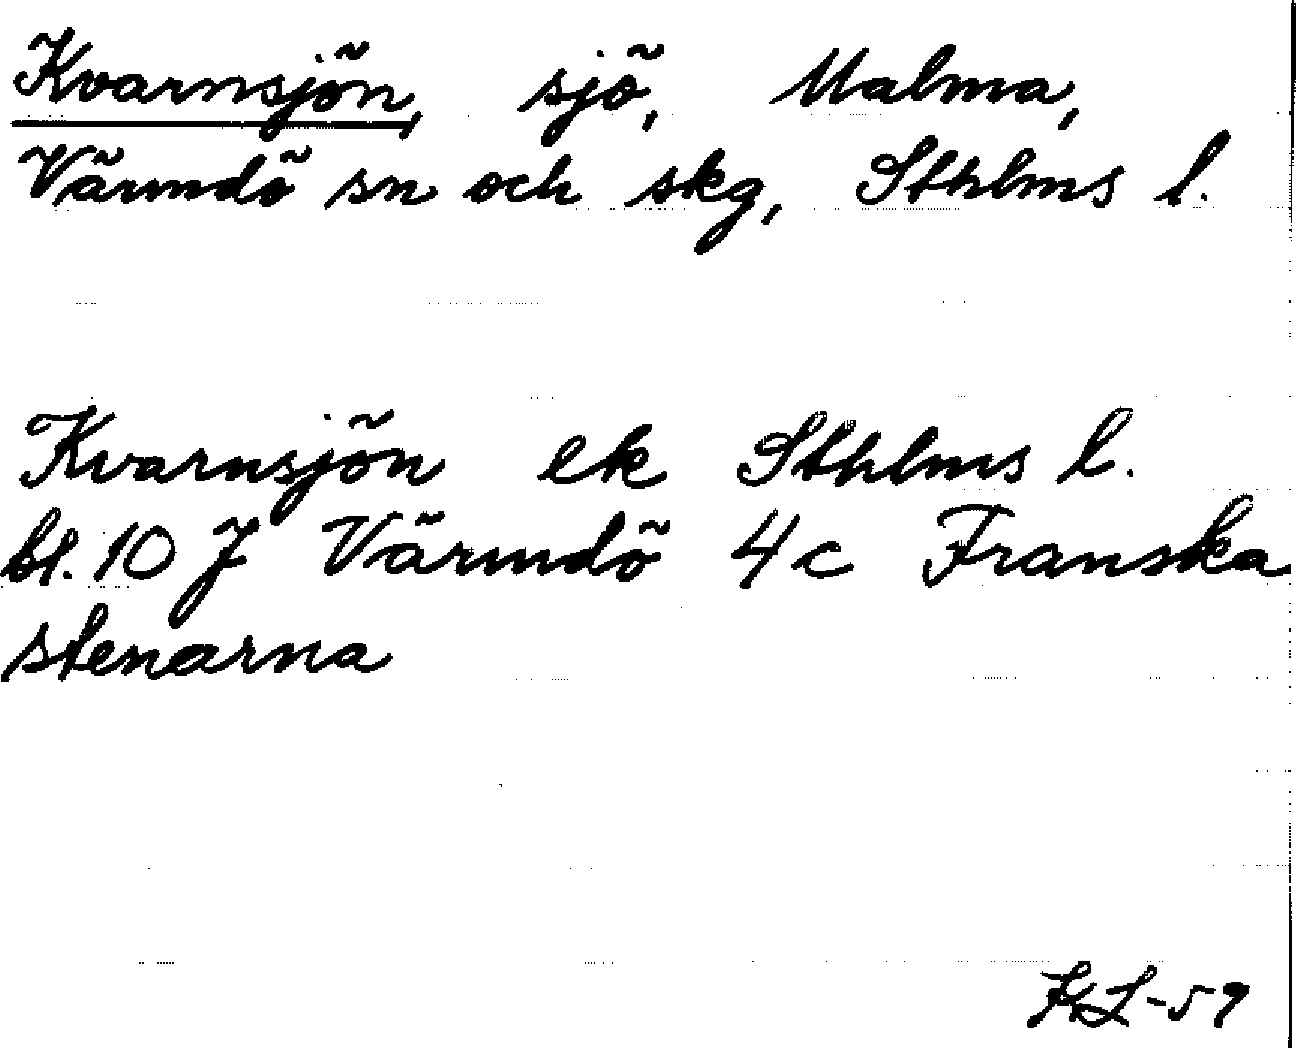 Kvarnsjön, sjö, Malma,
Värmdö sn och skg, Sthlms l.
Kvarnsjön ek Sthlms l.
bl. 10 J Värmdö 4c Franska
stenarna
KL-59